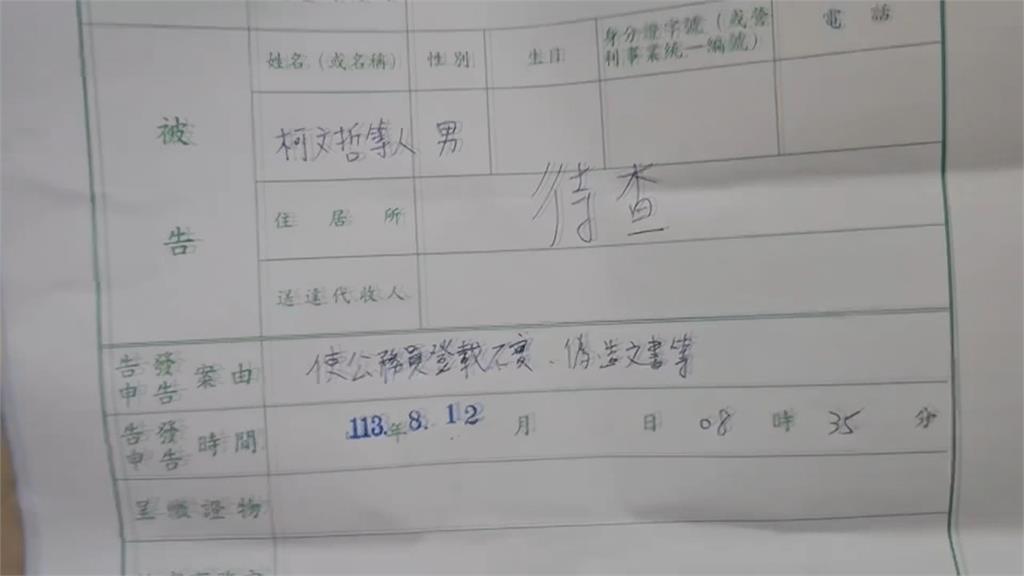 姓名（或名稱） 性別 生日 身分證字號（或營利事業統一編號） 電話
被告
柯文哲等人 男
住居所 待查
送達代收人
告發申告案由 使公務員登載不實、偽造文書等
告發申告時間 113.年8.12月 日08時35分
呈繳證物